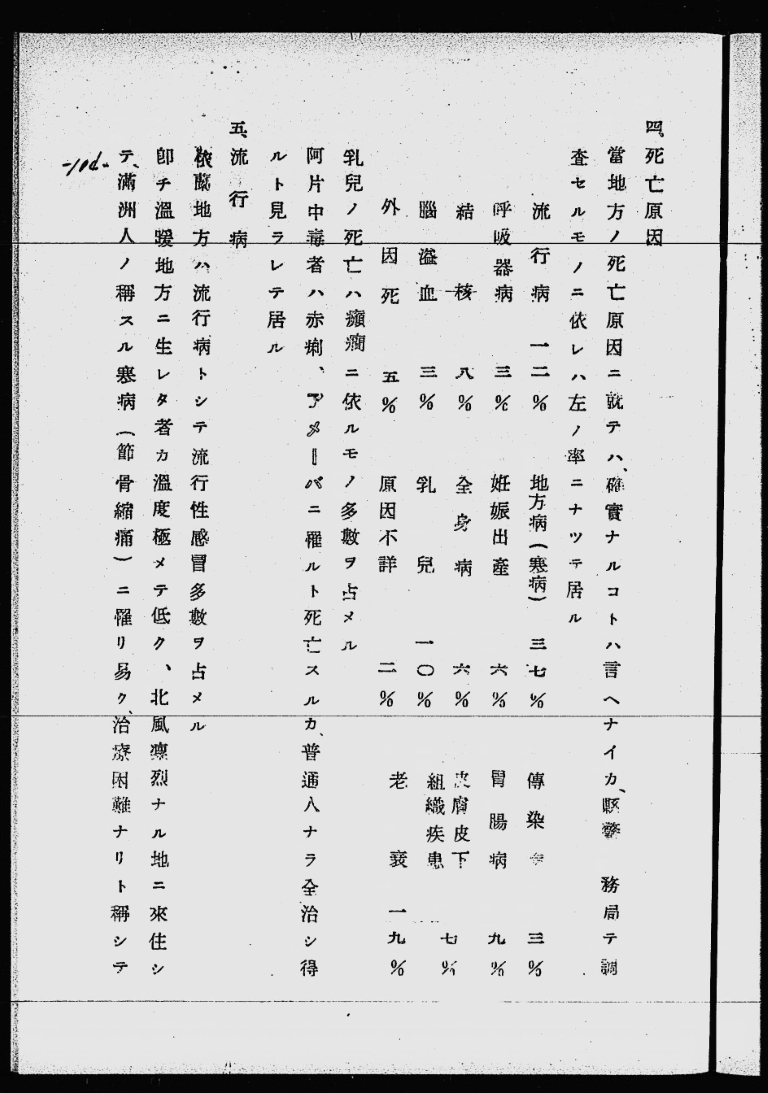 四、死亡原因
當地方ノ死亡原因ニ就テハ、確實ナルコトハ言ヘナイカ、縣警務局テ調
査セルモノニ依レハ左ノ率ニナツテ居ル
流行病 一二% 地方病(寒病) 三七% 傳染 三%
呼吸器病 三% 妊娠出產 六% 胃腸病 九%
結核 八% 全身病 六% 皮膚皮下
腦溢血 三% 乳兒 一〇% 組織疾患 七%
外因死 五% 原因不詳 二% 老衰 一九%
乳兒ノ死亡ハ癲癇ニ依ルモノ多數ヲ占メル
阿片中毒者ハ赤痢、アメーバニ罹ルト死亡スルカ、普通人ナラ全治シ得
ルト見ラレテ居ル
五、流行病
依蘭地方ハ流行病トシテ流行性感冒多數ヲ占メル
卽チ溫暖地方ニ生レタ者カ溫度極メテ低ク、北風凛烈ナル地ニ來住シ
テ、滿洲人ノ稱スル寒病(節骨縮痛)ニ罹リ易ク、治療困難ナリト稱シテ
-10d-